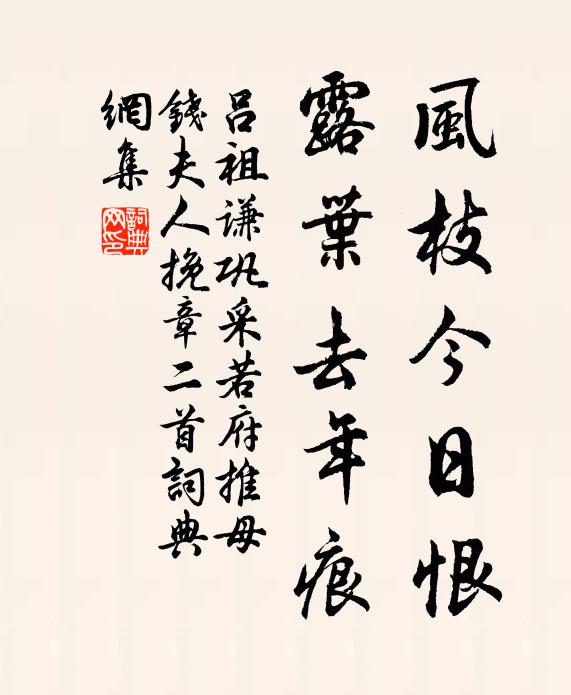 風枝今日恨
露葉去年痕
呂祖謙巩采若府推母
錢夫人挽章二首詞典
網集
詞典网印